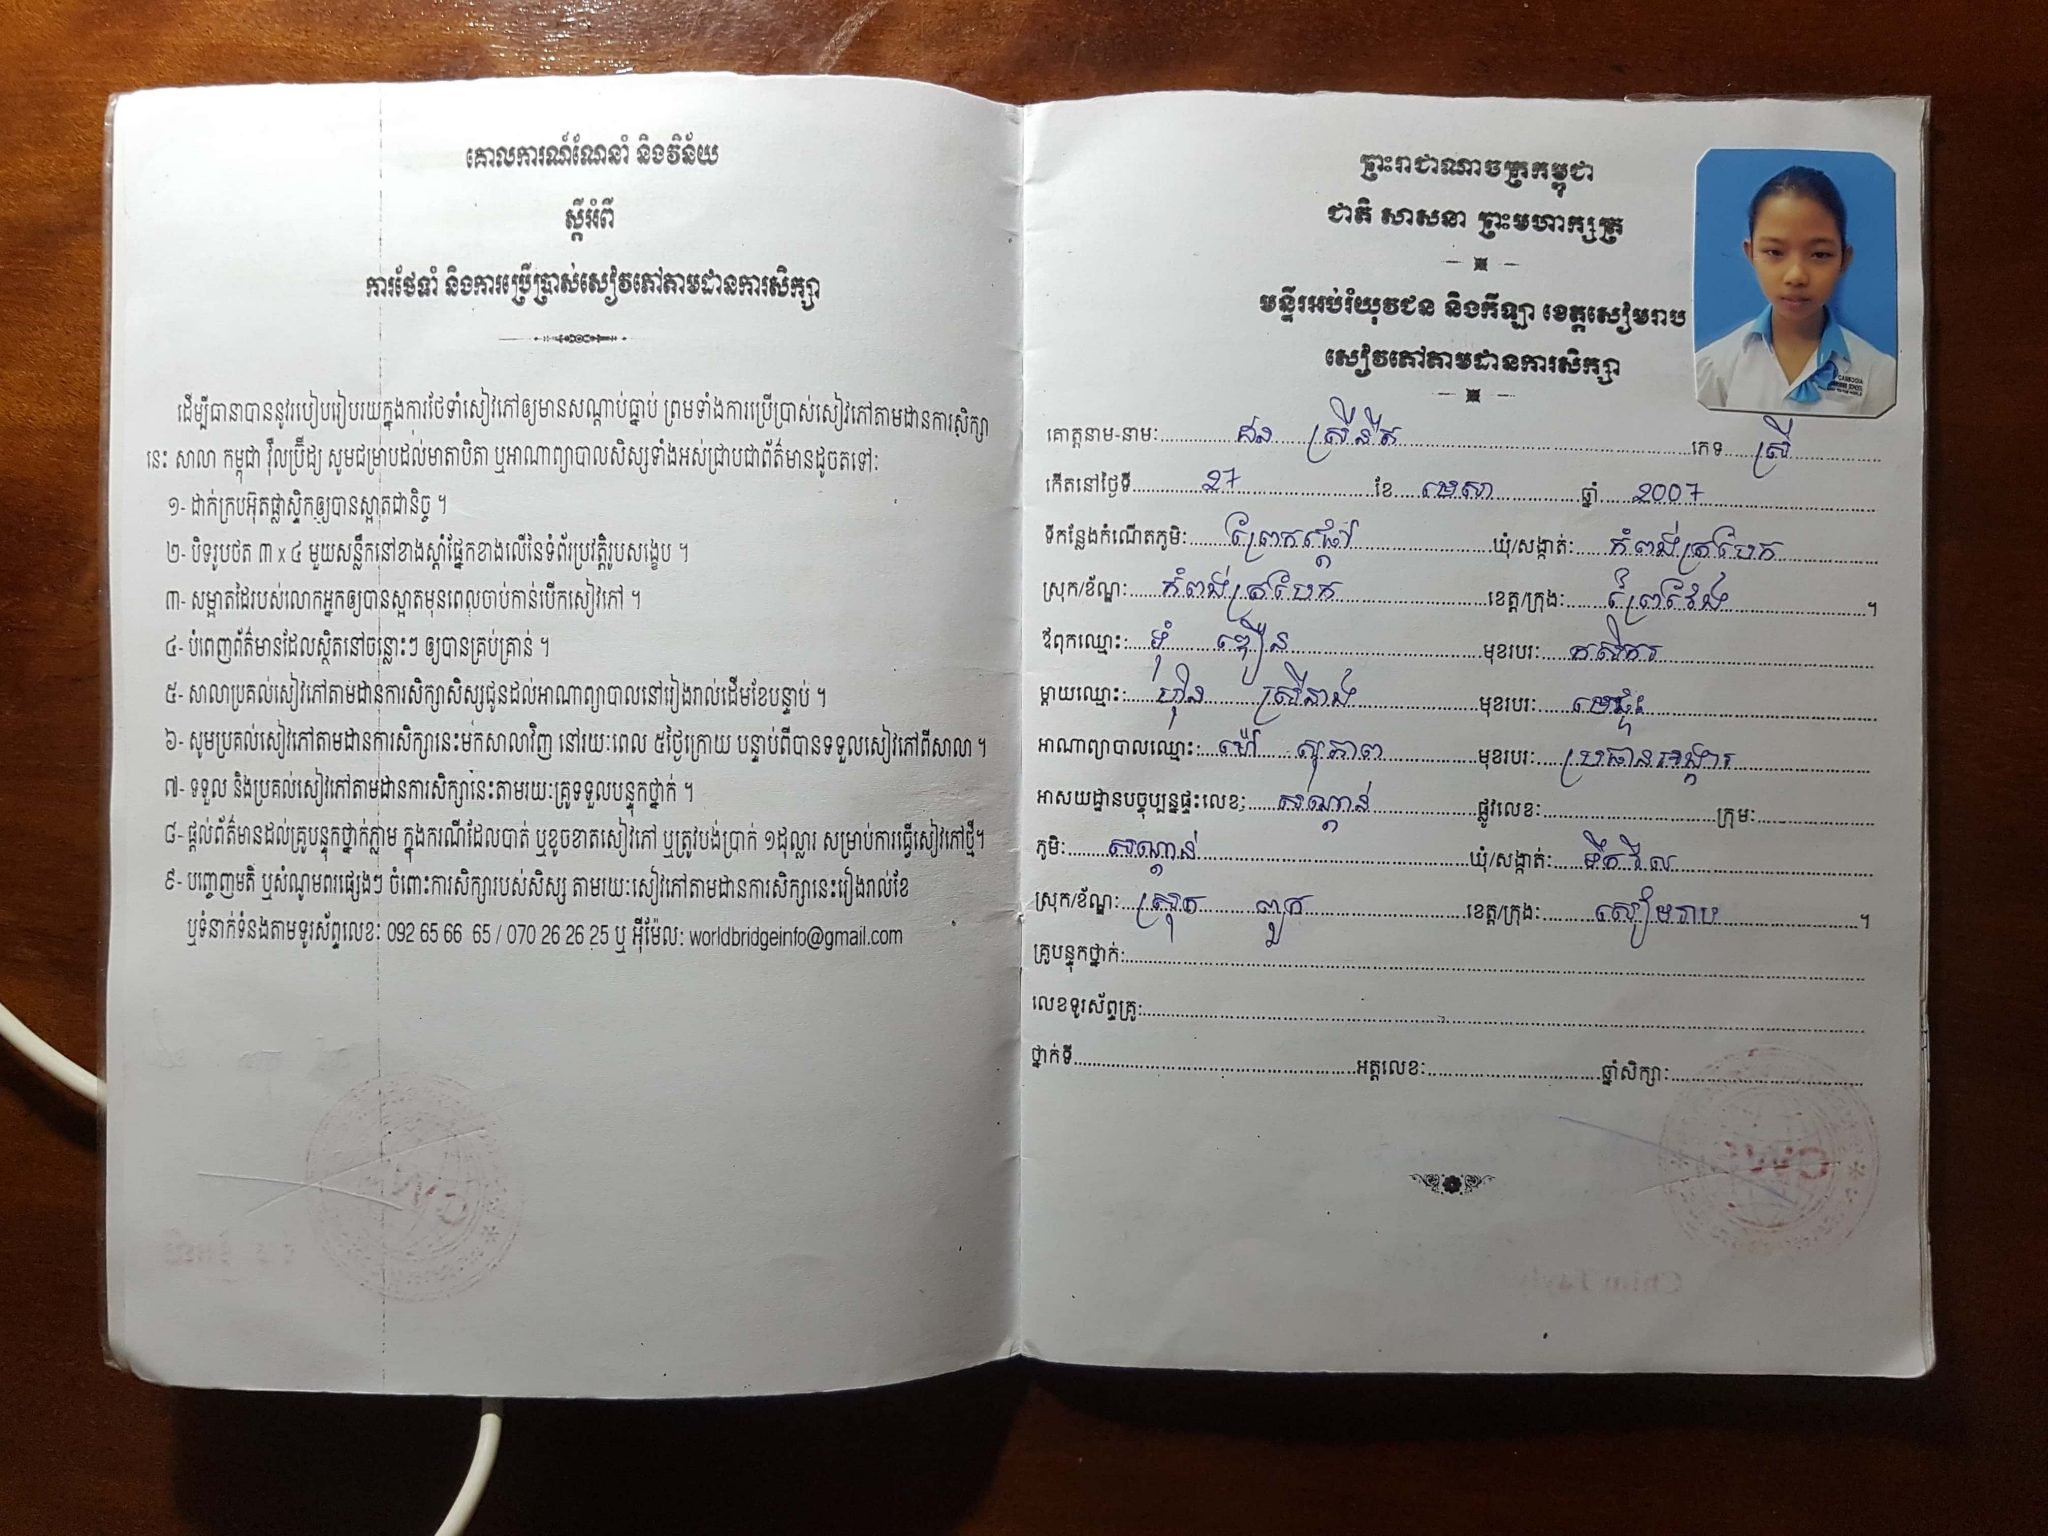 គោលការណ៍ណែនាំ និងវិន័យ
ស្តីអំពី
ការថែទាំ និងការប្រើប្រាស់សៀវភៅតាមដានការសិក្សា
ដើម្បីធានាបាននូវរបៀបរៀបរយក្នុងការថែទាំសៀវភៅឲ្យមានសណ្តាប់ធ្នាប់ ព្រមទាំងការប្រើប្រាស់សៀវភៅតាមដានការសិក្សា
នេះ សាលា កម្ពុជា វ៉ឺលប្រ៊ីដ្យ សូមជម្រាបដល់មាតាបិតា ឬអាណាព្យាបាលសិស្សទាំងអស់ជ្រាបជាព័ត៌មានដូចតទៅៈ
១- ដាក់ក្របអ៊ុតផ្លាស្ទិកឲ្យបានស្អាតជានិច្ច ។
២- បិទរូបថត ៣ x ៤ មួយសន្លឹកនៅខាងស្តាំផ្នែកខាងលើនៃទំព័រប្រវត្តិរូបសង្ខេប ។
៣- សម្អាតដៃរបស់លោកអ្នកឲ្យបានស្អាតមុនពេលចាប់កាន់បើកសៀវភៅ ។
៤- បំពេញព័ត៌មានដែលស្ថិតនៅចន្លោះៗ ឲ្យបានគ្រប់គ្រាន់ ។
៥- សាលាប្រគល់សៀវភៅតាមដានការសិក្សាសិស្សជូនដល់អាណាព្យាបាលនៅរៀងរាល់ដើមខែបន្ទាប់ ។
៦- សូមប្រគល់សៀវភៅតាមដានការសិក្សានេះមកសាលាវិញ នៅរយៈពេល ៥ថ្ងៃក្រោយ បន្ទាប់ពីបានទទួលសៀវភៅពីសាលា ។
៧- ទទួល និងប្រគល់សៀវភៅតាមដានការសិក្សានេះតាមរយៈគ្រូទទួលបន្ទុកថ្នាក់ ។
៨- ផ្តល់ព័ត៌មានដល់គ្រូបន្ទុកថ្នាក់ភ្លាម ក្នុងករណីដែលបាត់ ឬខូចខាតសៀវភៅ ឬត្រូវបង់ប្រាក់ ១ដុល្លារ សម្រាប់ការធ្វើសៀវភៅថ្មី។
៩- បញ្ចេញមតិ ឬសំណូមពរផ្សេងៗ ចំពោះការសិក្សារបស់សិស្ស តាមរយៈសៀវភៅតាមដានការសិក្សានេះរៀងរាល់ខែ
ឬទំនាក់ទំនងតាមទូរស័ព្ទលេខៈ 092 65 66 65 / 070 26 26 25 ឬ អ៊ីម៉ែលៈ worldbridgeinfo@gmail.com
ព្រះរាជាណាចក្រកម្ពុជា
ជាតិ សាសនា ព្រះមហាក្សត្រ
មន្ទីរអប់រំយុវជន និងកីឡា ខេត្តសៀមរាប
សៀវភៅតាមដានការសិក្សា
គោត្តនាម-នាមៈ ដន ស្រីនីត ភេទ ស្រី
កើតនៅថ្ងៃទី 27 ខែ មេសា ឆ្នាំ 2007
ទីកន្លែងកំណើតភូមិៈ ព្រែកផ្តៅ ឃុំ/សង្កាត់ៈ កំពង់ត្របែក
ស្រុក/ខ័ណ្ឌៈ កំពង់ត្របែក ខេត្ត/ក្រុងៈ ព្រៃវែង ។
ឪពុកឈ្មោះៈ ទុំ មុខរបរៈ កសិករ
ម្តាយឈ្មោះៈ ហ៊ុន ស្រីនាង មុខរបរៈ មេផ្ទះ
អាណាព្យាបាលឈ្មោះៈ ម៉ៅ សុភាព មុខរបរៈ ប្រធានអង្គការ
អាសយដ្ឋានបច្ចុប្បន្នផ្ទះលេខៈ តាណ្តាន់ ផ្លូវលេខៈ ក្រុមៈ
ភូមិៈ តាណ្តាន់ ឃុំ/សង្កាត់ៈ ទឹកវិល
ស្រុក/ខ័ណ្ឌៈ ស្រុក ពួក ខេត្ត/ក្រុងៈ សៀមរាប ។
គ្រូបន្ទុកថ្នាក់ៈ
លេខទូរស័ព្ទគ្រូៈ
ថ្នាក់ទី អត្តលេខៈ ឆ្នាំសិក្សាៈ